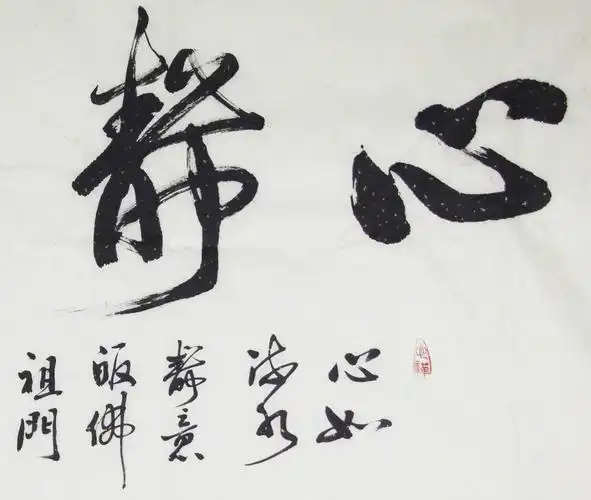 心靜
心如
海水
靜意
皈佛
祖門